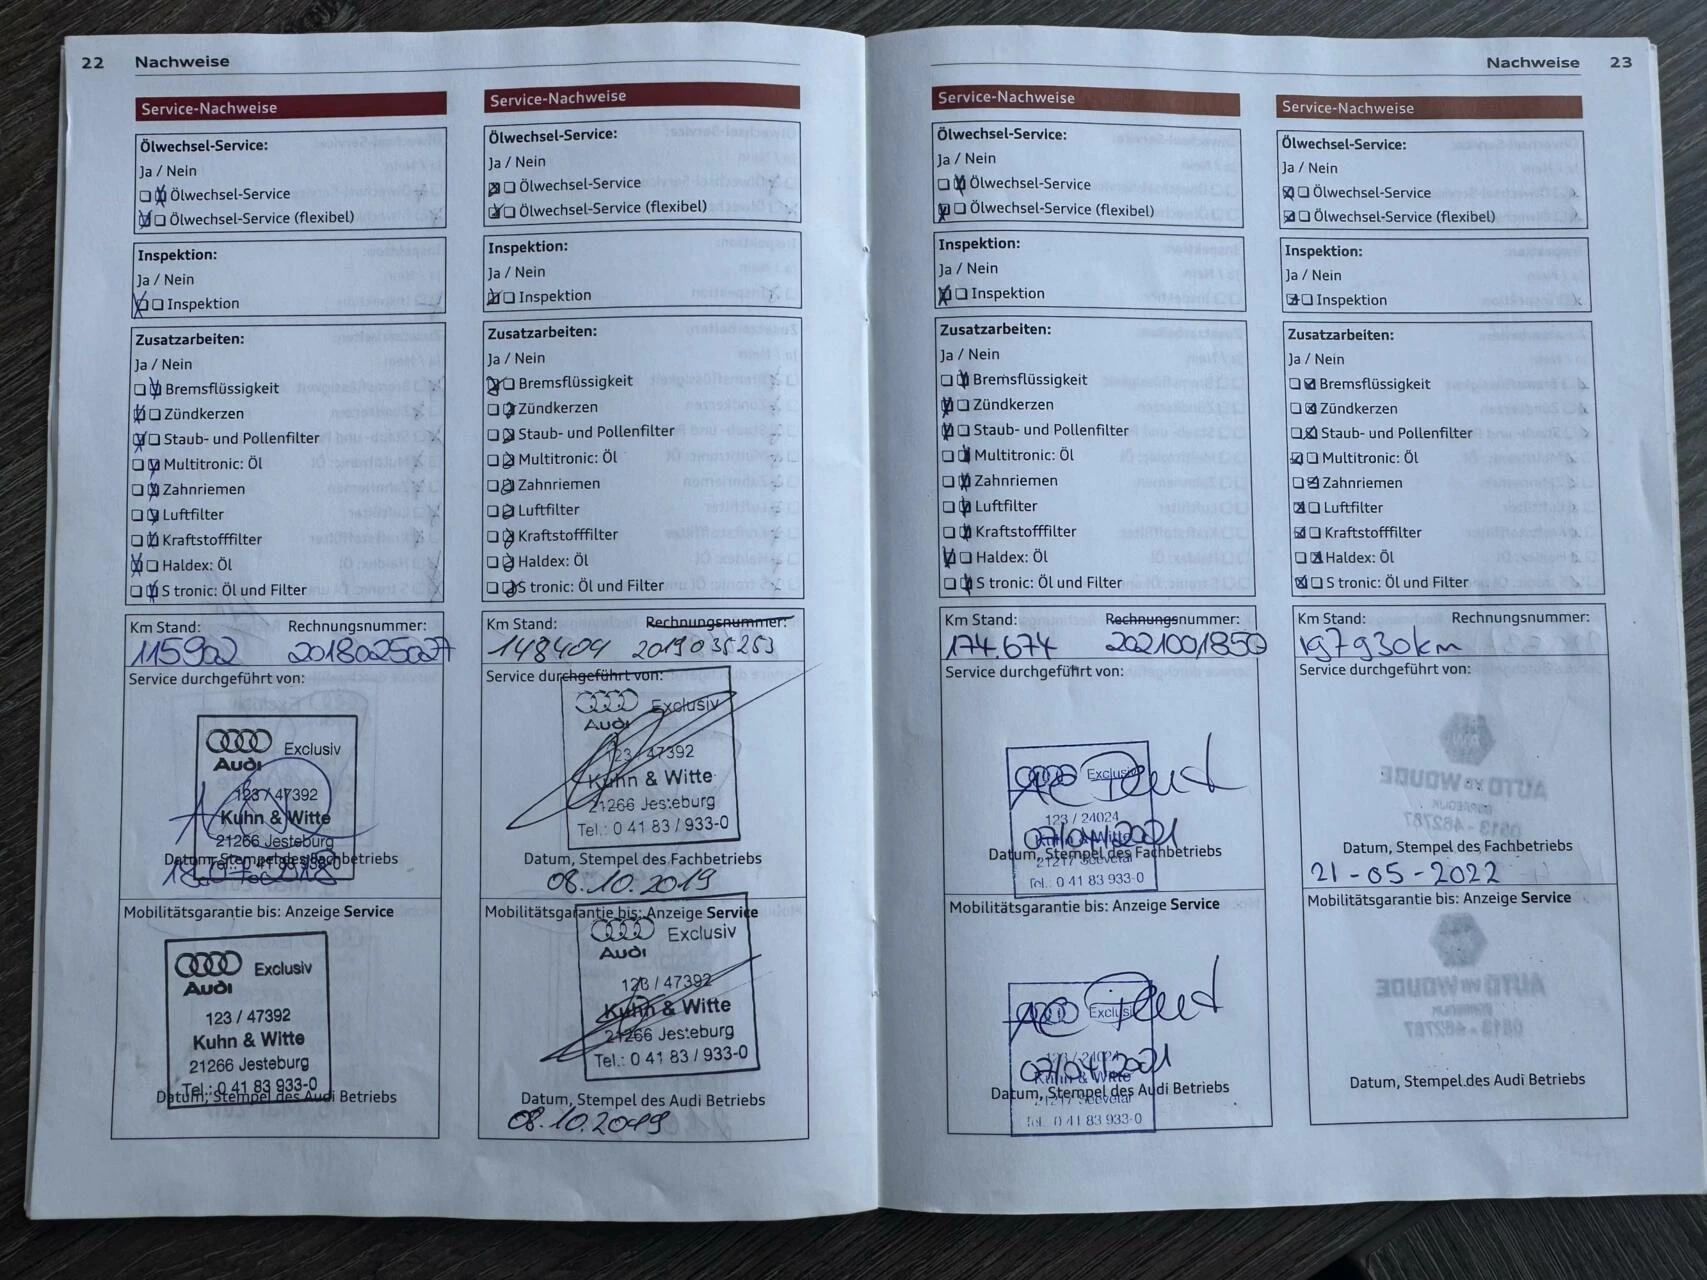 22 Nachweise
Service-Nachweise
Ölwechsel-Service:
Ja / Nein
Ölwechsel-Service
Ölwechsel-Service (flexibel)
Inspektion:
Ja / Nein
Inspektion
Zusatzarbeiten:
Ja / Nein
Bremsflüssigkeit
Zündkerzen
Staub- und Pollenfilter
Multitronic: Öl
Zahnriemen
Luftfilter
Kraftstofffilter
Haldex: Öl
S tronic: Öl und Filter
Km Stand: Rechnungsnummer:
115902 2018025027
Service durchgeführt von:
Exclusiv
Audi
123 / 47392
Kuhn & Witte
21266 Jesteburg
Tel.: 0 41 83 933-0
Datum, Stempel des Fachbetriebs
18.07.2018
Mobilitätsgarantie bis: Anzeige Service
Exclusiv
Audi
123 / 47392
Kuhn & Witte
21266 Jesteburg
Tel.: 0 41 83 933-0
Datum, Stempel des Audi Betriebs
Service-Nachweise
Ölwechsel-Service:
Ja / Nein
Ölwechsel-Service
Ölwechsel-Service (flexibel)
Inspektion:
Ja / Nein
Inspektion
Zusatzarbeiten:
Ja / Nein
Bremsflüssigkeit
Zündkerzen
Staub- und Pollenfilter
Multitronic: Öl
Zahnriemen
Luftfilter
Kraftstofffilter
Haldex: Öl
S tronic: Öl und Filter
Km Stand: Rechnungsnummer:
148404 2019035253
Service durchgeführt von:
Exclusiv
Audi
123 / 47392
Kuhn & Witte
21266 Jesteburg
Tel.: 0 41 83 / 933-0
Datum, Stempel des Fachbetriebs
08.10.2019
Mobilitätsgarantie bis: Anzeige Service
Exclusiv
Audi
123 / 47392
Kuhn & Witte
21266 Jesteburg
Tel.: 0 41 83 / 933-0
Datum, Stempel des Audi Betriebs
08.10.2019
Nachweise 23
Service-Nachweise
Ölwechsel-Service:
Ja / Nein
Ölwechsel-Service
Ölwechsel-Service (flexibel)
Inspektion:
Ja / Nein
Inspektion
Zusatzarbeiten:
Ja / Nein
Bremsflüssigkeit
Zündkerzen
Staub- und Pollenfilter
Multitronic: Öl
Zahnriemen
Luftfilter
Kraftstofffilter
Haldex: Öl
S tronic: Öl und Filter
Km Stand: Rechnungsnummer:
174674 2021001850
Service durchgeführt von:
Exclusiv
123 / 24024
Kuhn & Witte
07/04/2021
21217 Seevetal
Tel.: 0 41 83 933-0
Datum, Stempel des Fachbetriebs
Mobilitätsgarantie bis: Anzeige Service
Exclusiv
123 / 24024
07/04/2021
Kuhn & Witte
21217 Seevetal
Tel.: 0 41 83 933-0
Datum, Stempel des Audi Betriebs
Service-Nachweise
Ölwechsel-Service:
Ja / Nein
Ölwechsel-Service
Ölwechsel-Service (flexibel)
Inspektion:
Ja / Nein
Inspektion
Zusatzarbeiten:
Ja / Nein
Bremsflüssigkeit
Zündkerzen
Staub- und Pollenfilter
Multitronic: Öl
Zahnriemen
Luftfilter
Kraftstofffilter
Haldex: Öl
S tronic: Öl und Filter
Km Stand: Rechnungsnummer:
197930km
Service durchgeführt von:
Datum, Stempel des Fachbetriebs
21-05-2022
Mobilitätsgarantie bis: Anzeige Service
Datum, Stempel des Audi Betriebs